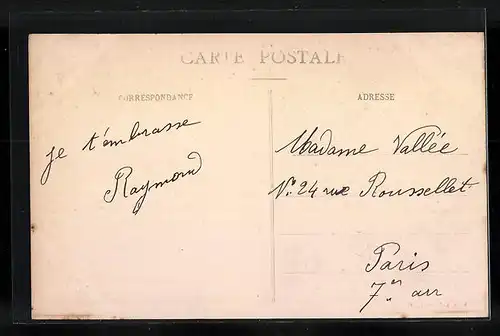 CARTE POSTALE
CORRESPONDANCE
je t'embrasse
Raymond
ADRESSE
Madame Vallée
N° 24 rue Roussellet
Paris
7er arr